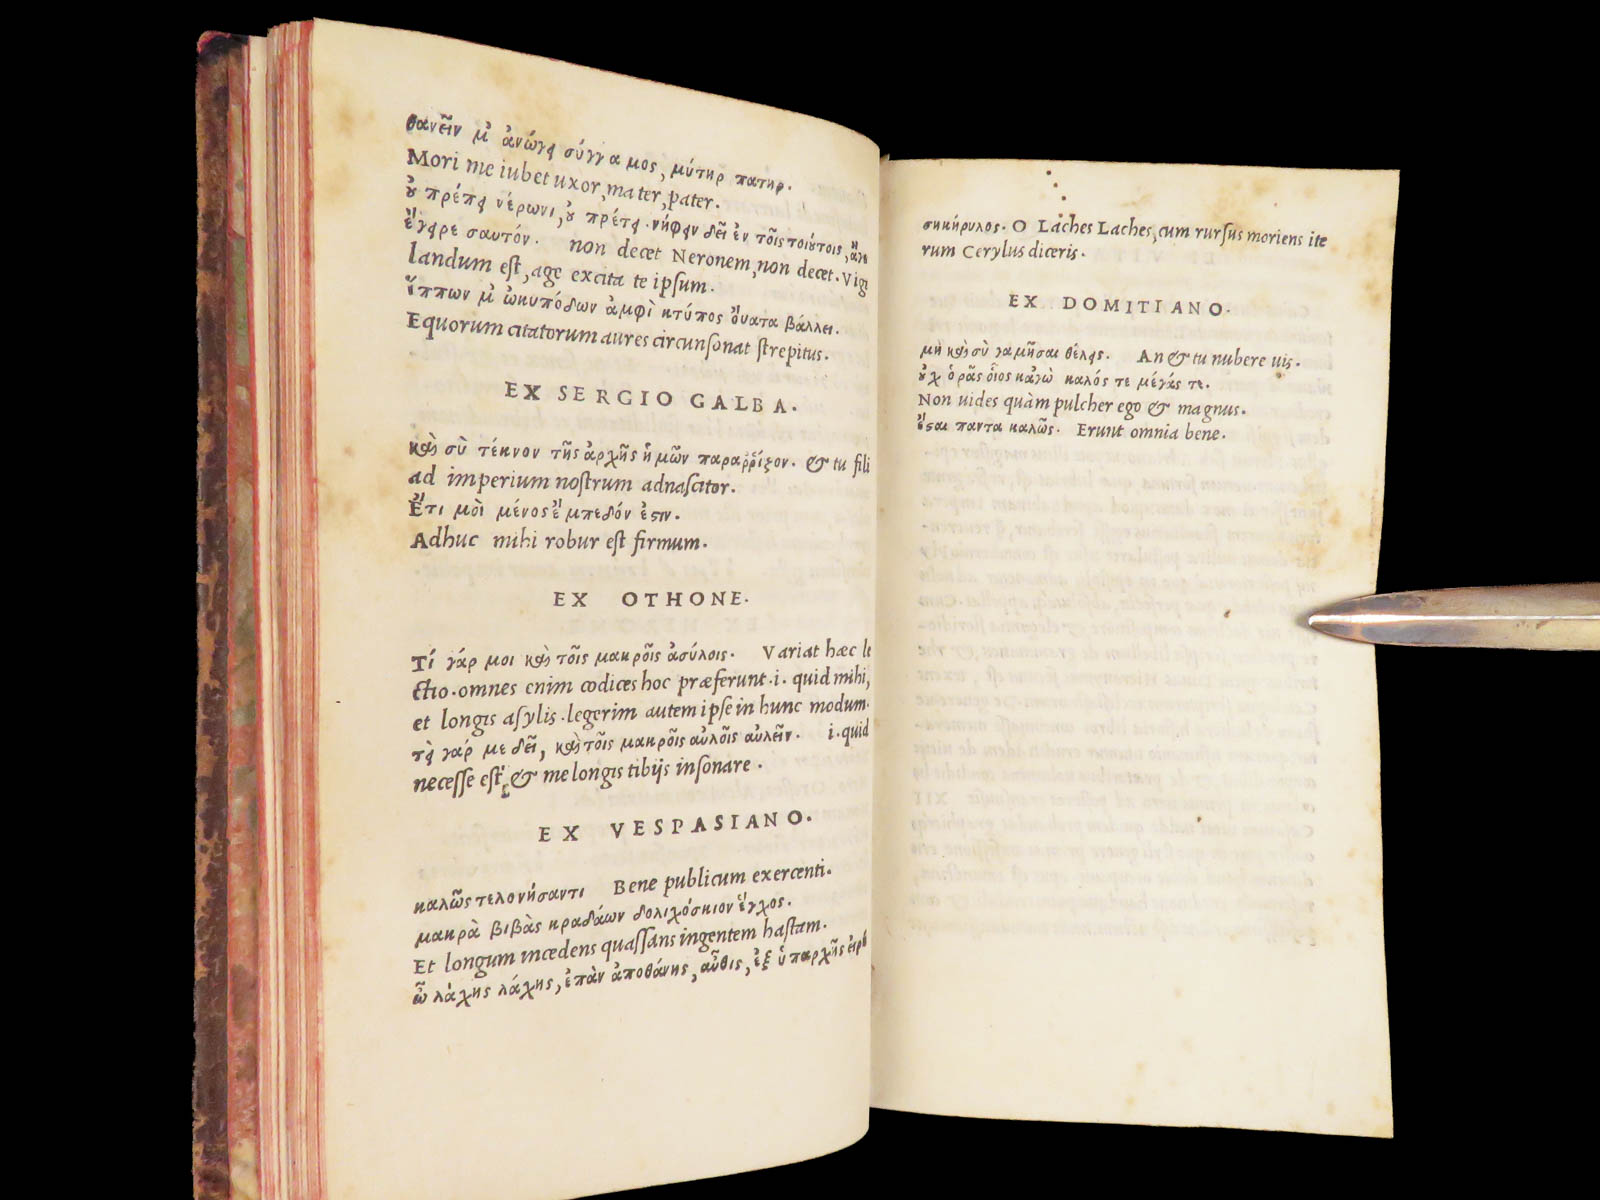 θανεῖν μ' ἀνώγει σύγγαμος, μήτηρ πατηρ.
Mori me iubet uxor, mater, pater.
οὐ πρέπει νέρωνι, οὐ πρέπει. νήφειν δεῖ ἐν τοῖς τοιούτοις, ἄγε
ἔγειρε σαυτόν. non decet Neronem, non decet. Vigi
landum eſt, age excita te ipſum.
ἵππων μ' ὠκυπόδων ἀμφὶ κτύπος οὔατα βάλλει.
Equorum citatorum aures circunſonat ſtrepitus.
EX SERGIO GALBA.
καὶ σὺ τέκνον τῆς ἀρχῆς ἡμῶν παρατρώξῃ. & tu fili
ad imperium noſtrum adnaſcitor.
Ἔτι μοὶ μένος ἔμπεδόν ἐστιν.
Adhuc mihi robur eſt firmum.
EX OTHONE.
Τί γάρ μοι καὶ τοῖς μακροῖς ἀσύλοις. Variat hæc le
ctio. omnes enim codices hoc præferunt .i. quid mihi,
et longis aſylis. legerim autem ipſe in hunc modum.
τί γάρ με δεῖ, καὶ τοῖς μακροῖς αὐλοῖς αὐλεῖν. i. quid
neceſſe eſt & me longis tibijs inſonare.
EX VESPASIANO.
καλῶς τελονήσαντι Bene publicum exercenti.
μακρὰ βιβὰς κραδάων δολιχόσκιον ἔγχος.
Et longum incedens quaſſans ingentem haſtam.
ὦ λάχης λάχης, ἐπὰν ἀποθάνης, αὖθις, ἐξ ὑπαρχῆς εἰρή
σηκήρυλος. O Laches Laches, cum rurſus moriens ite
rum Cerylus diceris.
EX DOMITIANO.
μὴ καὶ σὺ γαμῆσαι θέλεις. An & tu nubere uis.
οὐχ ὁρᾶς οἷος κἀγὼ καλός τε μέγας τε.
Non uides quàm pulcher ego & magnus.
ἔσται παντα καλῶς. Erunt omnia bene.